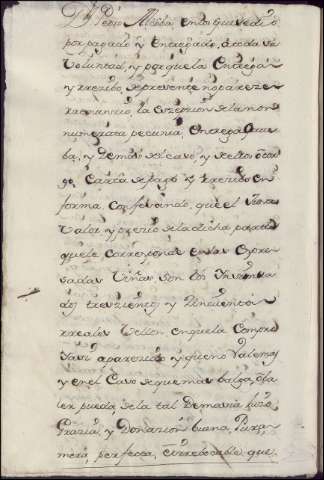 Dn Pedro Alcoba en los que se dio
por pagado y entregado, a toda su
Voluntad, y porque la entrega
y rrezivo, de presente no pareze
rrenunzio, la exzepzion de la non
numerata pecunia, entrega prue
ba, y demas del caso, y de ellos otor
go Carta de pago y rrezivo en
forma, Confesando, que el
Valor y prezio de la dicha parte
que le corresponde en las expre
sadas Viñas, son los
dos trezientos y zinquenta
rreales Vellon, en que la Compro
y que no Valen mas
y en el Caso de que mas balga, o va
ler pueda, de la tal Demasia hizo,
Grazia, y Donazion, buena, Pura,
mera, perfecta, e yrrebocable que